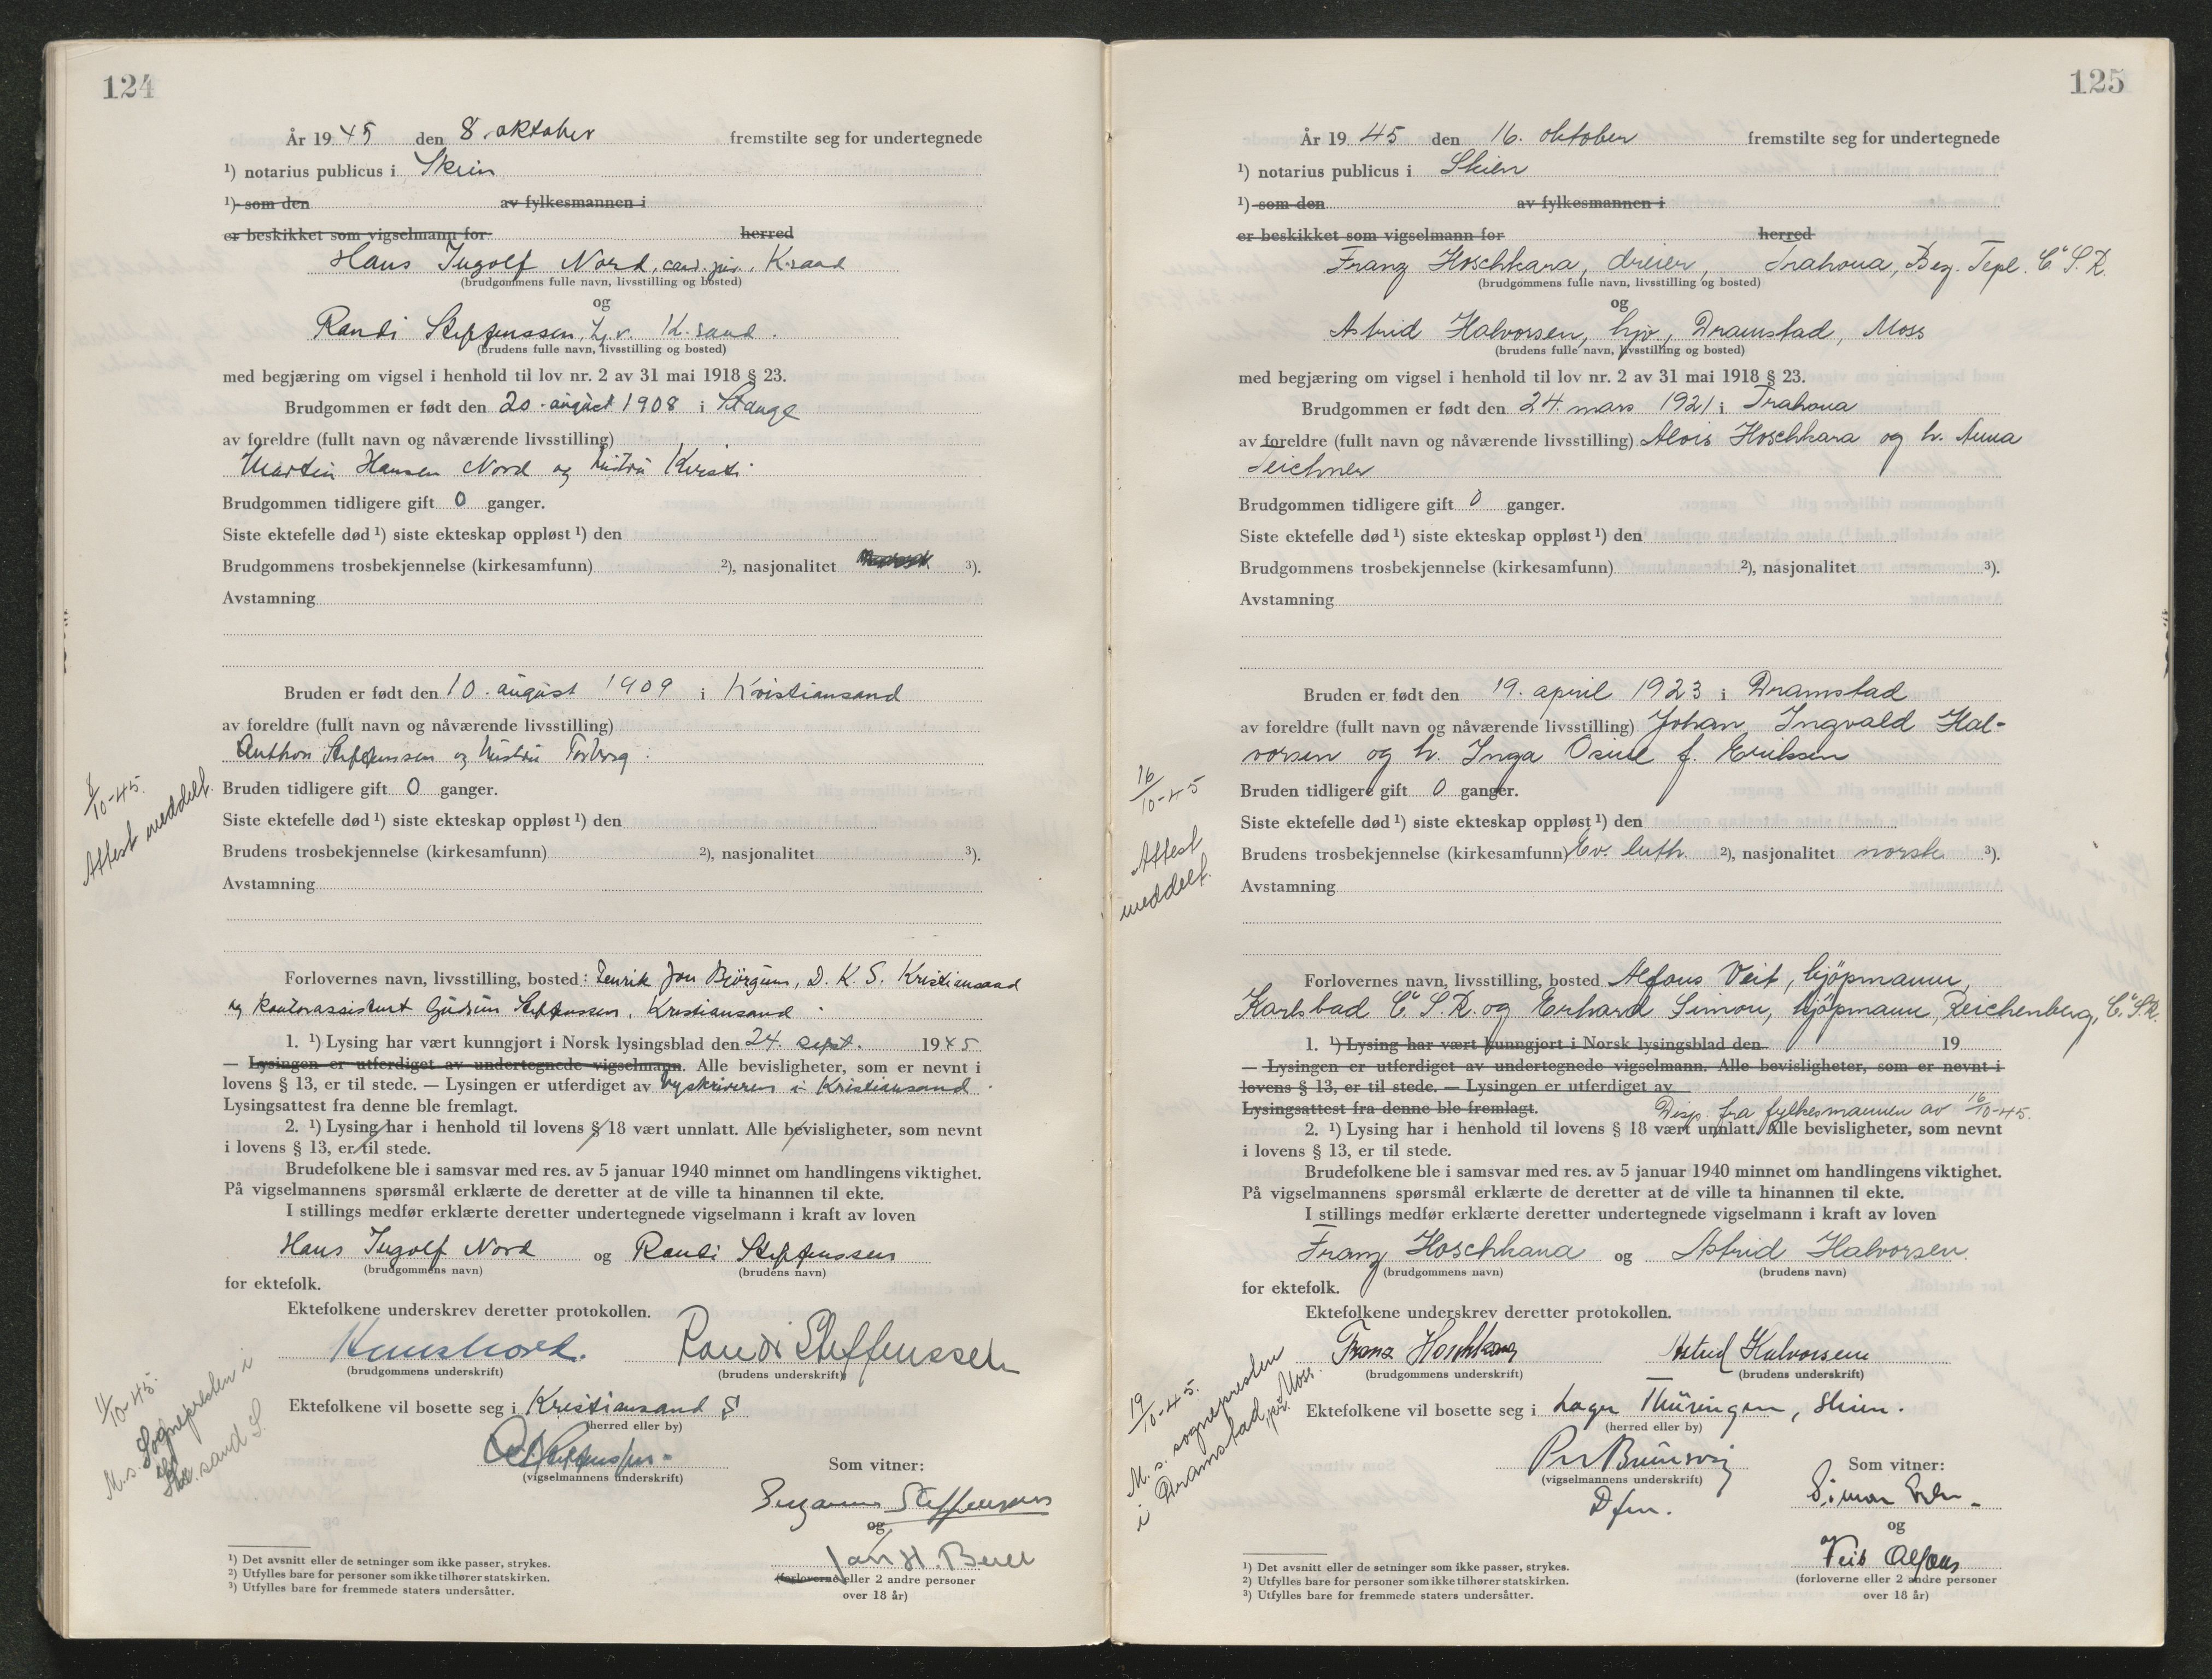 124
År 19 45 den 8. oktober fremstilte seg for undertegnede
¹) notarius publicus i Skien
¹) som den av fylkesmannen i
er beskikket som vigselmann for herred
Hans Ingolf Nord, cand. jur., K.sand
(brudgommens fulle navn, livsstilling og bosted)
og
Randi Steffenssen, h.v. K.sand.
(brudens fulle navn, livsstilling og bosted)
med begjæring om vigsel i henhold til lov nr. 2 av 31 mai 1918 § 23.
Brudgommen er født den 20. august 1908 i Stange
av foreldre (fullt navn og nåværende livsstilling)
Martin Hansen Nord og hustru Kirsti.
Brudgommen tidligere gift 0 ganger.
Siste ektefelle død ¹) siste ekteskap oppløst ¹) den
Brudgommens trosbekjennelse (kirkesamfunn) ²), nasjonalitet ³).
Avstamning
Bruden er født den 10. august 1909 i Kristiansand
av foreldre (fullt navn og nåværende livsstilling)
Anthon Steffenssen og hustru Torborg.
Bruden tidligere gift 0 ganger.
Siste ektefelle død ¹) siste ekteskap oppløst ¹) den
Brudens trosbekjennelse (kirkesamfunn) ²), nasjonalitet ³).
Avstamning
8/10-45.
Attest meddelt.
Forlovernes navn, livsstilling, bosted: Henrik Jon Björgum, D. K. S. Kristiansand
og kontorassistent Gudrun Steffenssen, Kristiansand.
1. ¹) Lysing har vært kunngjort i Norsk lysingsblad den 24. sept. 1945
— Lysingen er utferdiget av undertegnede vigselmann. Alle bevisligheter, som er nevnt i
lovens § 13, er til stede. — Lysingen er utferdiget av byskriveren i Kristiansand.
Lysingsattest fra denne ble fremlagt.
2. ¹) Lysing har i henhold til lovens § 18 vært unnlatt. Alle bevisligheter, som nevnt
i lovens § 13, er til stede.
Brudefolkene ble i samsvar med res. av 5 januar 1940 minnet om handlingens viktighet.
På vigselmannens spørsmål erklærte de deretter at de ville ta hinannen til ekte.
I stillings medfør erklærte deretter undertegnede vigselmann i kraft av loven
Hans Ingolf Nord og Randi Steffenssen
(brudgommens navn) (brudens navn)
for ektefolk.
Ektefolkene underskrev deretter protokollen.
Hans Nord. Randi Steffenssen
(brudgommens underskrift) (brudens underskrift)
Ektefolkene vil bosette seg i Kristiansand S
(herred eller by)
(vigselmannens underskrift)
11/10-45.
M.s. Sognepresten i
Kr.sand S.
Som vitner:
Steffenssen
og
Jan H. Bull
(forloverne eller 2 andre personer
over 18 år)
¹) Det avsnitt eller de setninger som ikke passer, strykes.
²) Utfylles bare for personer som ikke tilhører statskirken.
³) Utfylles bare for fremmede staters undersåtter.
125
År 19 45 den 16. oktober fremstilte seg for undertegnede
¹) notarius publicus i Skien
¹) som den av fylkesmannen i
er beskikket som vigselmann for herred
Franz Hoschkara, dreier, Trahona, Bez. Tepl. Č.S.R.
(brudgommens fulle navn, livsstilling og bosted)
og
Astrid Halvorsen, hjv., Dramstad, Moss
(brudens fulle navn, livsstilling og bosted)
med begjæring om vigsel i henhold til lov nr. 2 av 31 mai 1918 § 23.
Brudgommen er født den 24. mars 1921 i Trahona
av foreldre (fullt navn og nåværende livsstilling) Alois Hoschkara og h. Anna
Teichner
Brudgommen tidligere gift 0 ganger.
Siste ektefelle død ¹) siste ekteskap oppløst ¹) den
Brudgommens trosbekjennelse (kirkesamfunn) ²), nasjonalitet ³).
Avstamning
Bruden er født den 19. april 1923 i Dramstad
av foreldre (fullt navn og nåværende livsstilling) Johan Ingvald Hal-
vorsen og h. Inga f. Eriksen
Bruden tidligere gift 0 ganger.
Siste ektefelle død ¹) siste ekteskap oppløst ¹) den
Brudens trosbekjennelse (kirkesamfunn) Ev. luth. ²), nasjonalitet norsk ³).
Avstamning
16/10-45
Attest
meddelt.
Forlovernes navn, livsstilling, bosted Alfons Veit, kjöpmann,
Karlsbad Č.S.R. og Erhard Simon, kjöpmann, Reichenberg, Č.S.R.
1. ¹) Lysing har vært kunngjort i Norsk lysingsblad den 19
— Lysingen er utferdiget av undertegnede vigselmann. Alle bevisligheter, som er nevnt i
lovens § 13, er til stede. — Lysingen er utferdiget av
Lysingsattest fra denne ble fremlagt. Disp. fra fylkesmannen av 16/10-45.
2. ¹) Lysing har i henhold til lovens § 18 vært unnlatt. Alle bevisligheter, som nevnt
i lovens § 13, er til stede.
Brudefolkene ble i samsvar med res. av 5 januar 1940 minnet om handlingens viktighet.
På vigselmannens spørsmål erklærte de deretter at de ville ta hinannen til ekte.
I stillings medfør erklærte deretter undertegnede vigselmann i kraft av loven
Franz Hoschkara og Astrid Halvorsen.
(brudgommens navn) (brudens navn)
for ektefolk.
Ektefolkene underskrev deretter protokollen.
Franz Hoschkara Astrid Halvorsen
(brudgommens underskrift) (brudens underskrift)
Ektefolkene vil bosette seg i Lager Thüringen, Skien.
(herred eller by)
(vigselmannens underskrift)
Dfm.
19/10-45.
M. s. sognepresten
i Dramstad, pr. Moss.
Som vitner:
Simon
og
Veit Alfons
(forloverne eller 2 andre personer
over 18 år)
¹) Det avsnitt eller de setninger som ikke passer, strykes.
²) Utfylles bare for personer som ikke tilhører statskirken.
³) Utfylles bare for fremmede staters undersåtter.